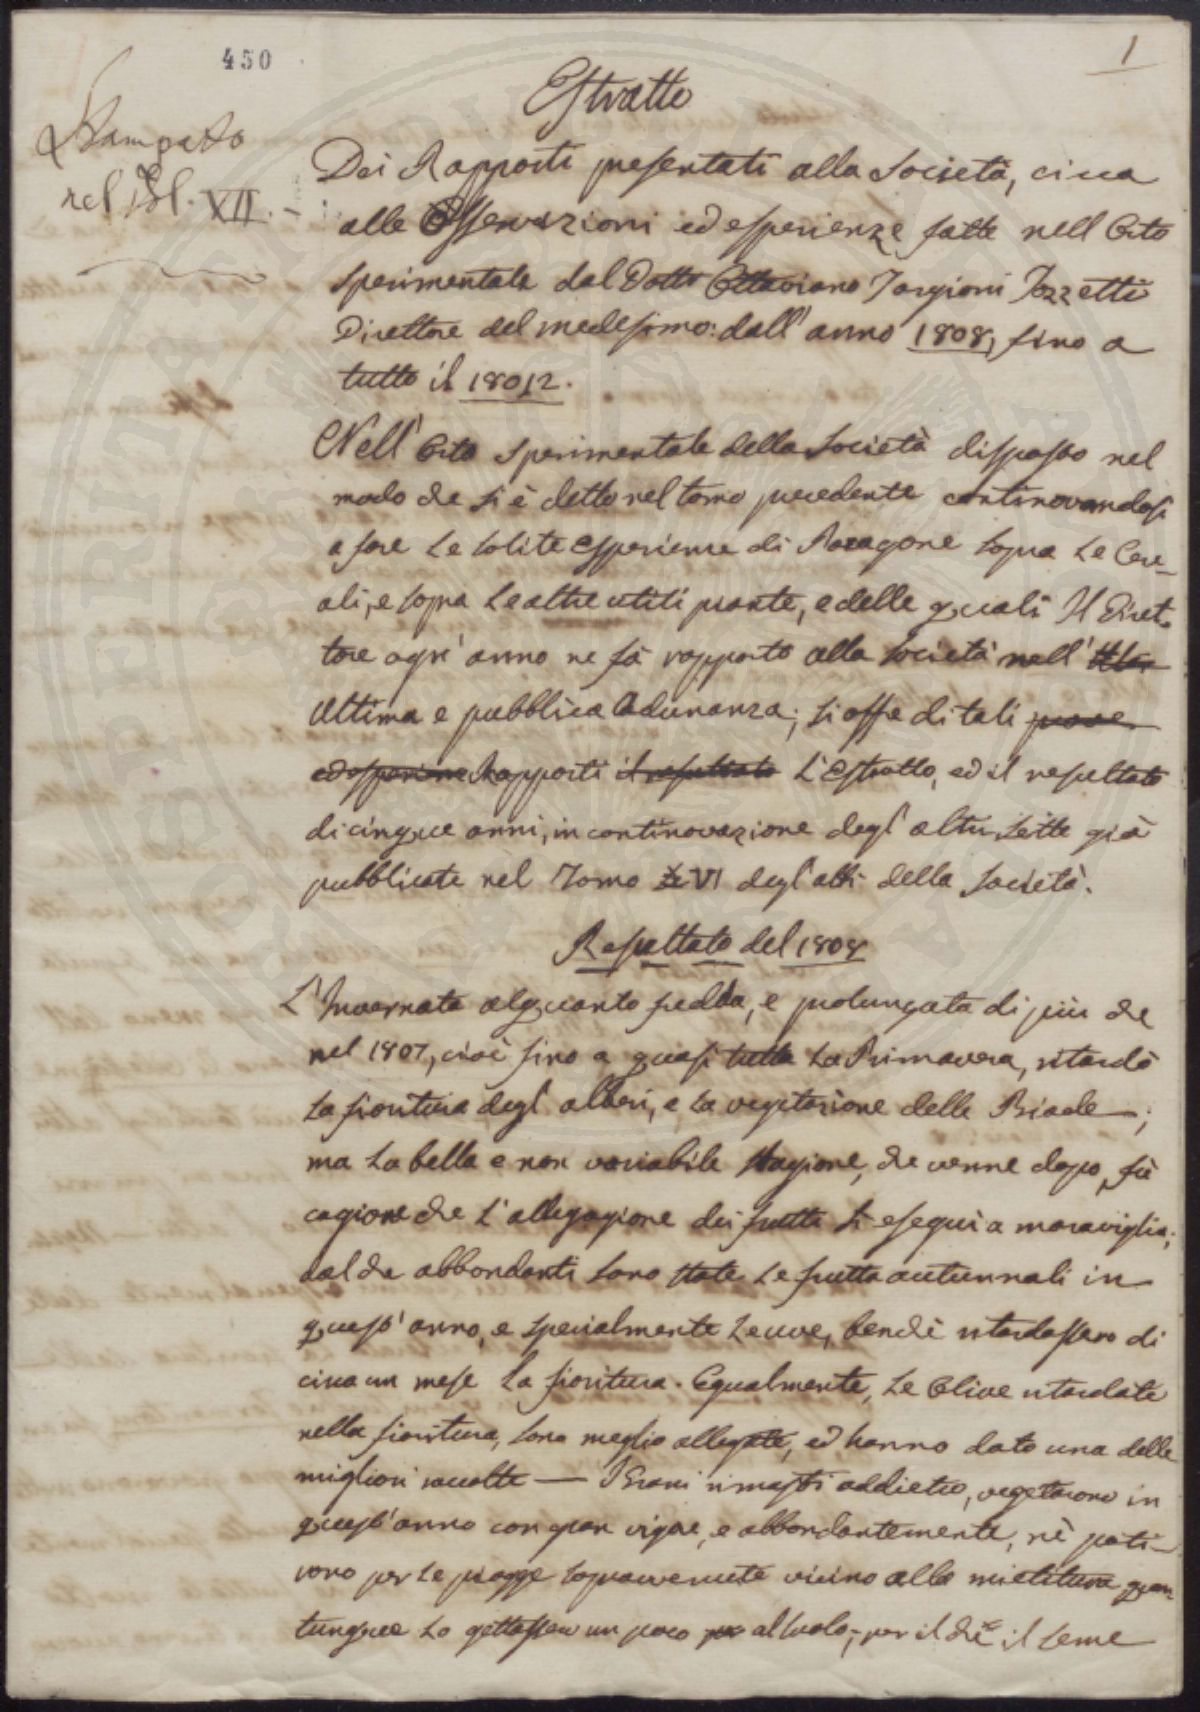 450
1
Stampato
nel Vol. XII.
Estratto
Dei Rapporti presentati alla Società, circa
alle Osservazioni ed esperienze fatte nell Orto
sperimentale dal Dotto Ottaviano Targioni Tozzetti
Direttore del medesimo: dall' anno 1808, fino a
tutto il 1812.
Nell' Orto sperimentale della Società disposto nel
modo che si è detto nel tomo precedente continovandosi
a fare le solite esperienze di Paragone sopra le Cere-
ali, e sopra le altre utili piante, e delle quali Il Diret
tore ogn' anno ne fà rapporto alla Società nell'
Ultima e pubblica Adunanza; si offre di tali prove
ed esperienze Rapporti il resultato L'Estratto, ed il resultato
di cinque anni, in continovazione degl' altri sette già
pubblicate nel Tomo VI degl' atti della Società.
Resultato del 1808
L'Invernata alquanto fredda, e prolungata di più che
nel 1807, cioè fino a quasi tutta la Primavera, ritardò
la fioritura degl' alberi, e la vegetazione delle Biade;
ma la bella e non variabile stagione, che venne dopo, fù
cagione che l'allegagione dei frutti si eseguì a maraviglia;
talche abbondanti sono state le frutta autunnali in
quest' anno, e specialmente le uve, benchè ritardassero di
circa un mese la fioritura. Egualmente, le Olive ritardate
nella fioritura, sono meglio allegate, ed hanno dato una delle
migliori raccolte — I Grani rimasti addietro, vegetarono in
quest' anno con gran vigore, e abbondantemente, nè pati-
rono per le piogge sopravvenute vicino alla mietitura quan
tunque lo gettassero un poco al suolo; per il chè il seme